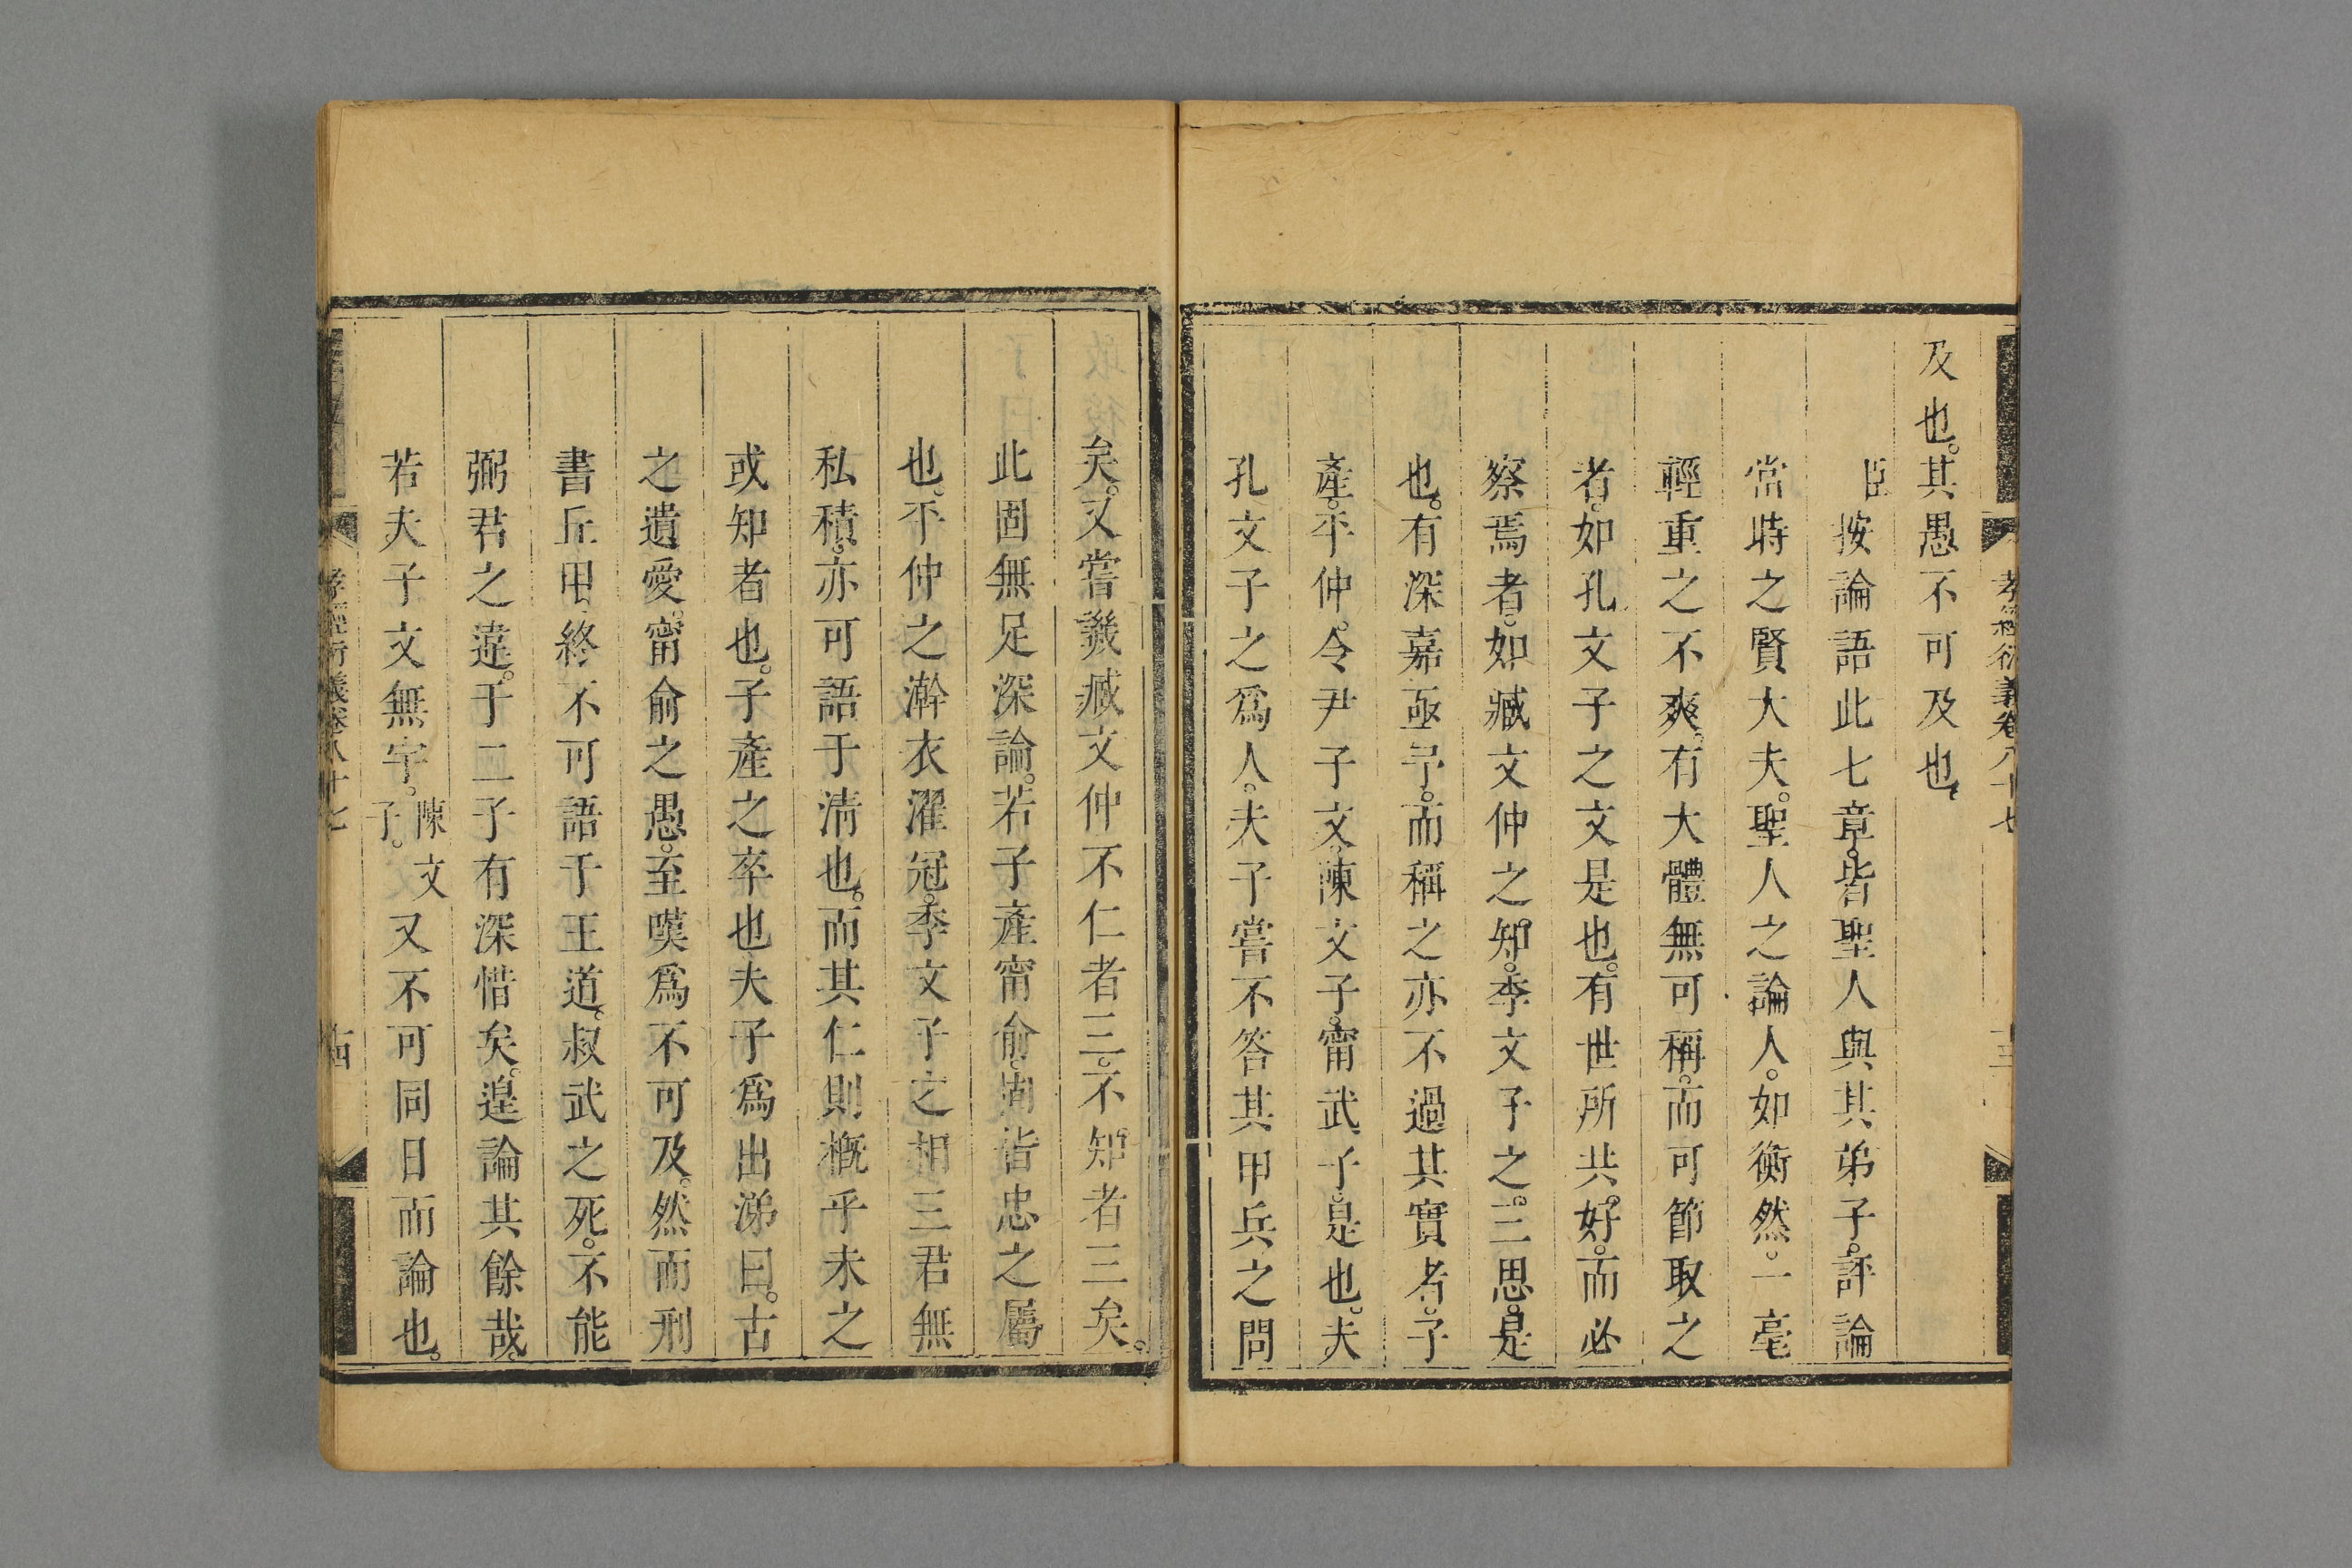 孝經衍義卷八十七
及也。其愚不可及也。
臣按論語此七章。皆聖人與其弟子。評論
當時之賢大夫。聖人之論人。如衡然。一毫
輕重之不爽。有大體無可稱。而可節取之
者。如孔文子之文是也。有世所共好。而必
察焉者。如臧文仲之知。季文子之三思。是
也。有深嘉亟予。而稱之亦不過其實者。子
產。平仲。令尹子文。陳文子。甯武子。是也。夫
孔文子之爲人。夫子嘗不答其甲兵之問
矣。又嘗譏臧文仲不仁者三。不知者三矣。
此固無足深論。若子產甯俞。固皆忠之屬
也。平仲之澣衣濯冠。季文子之相三君無
私積。亦可語于淸也。而其仁則槪乎未之
或知者也。子產之卒也夫子爲出涕曰。古
之遺愛。甯俞之愚。至嘆爲不可及。然而刑
書丘甲。終不可語于王道。叔武之死。不能
弼君之違。于二子有深惜矣。遑論其餘哉。
若夫子文無宇。陳文子。又不可同日而論也。
孝經衍義卷八十七
十四